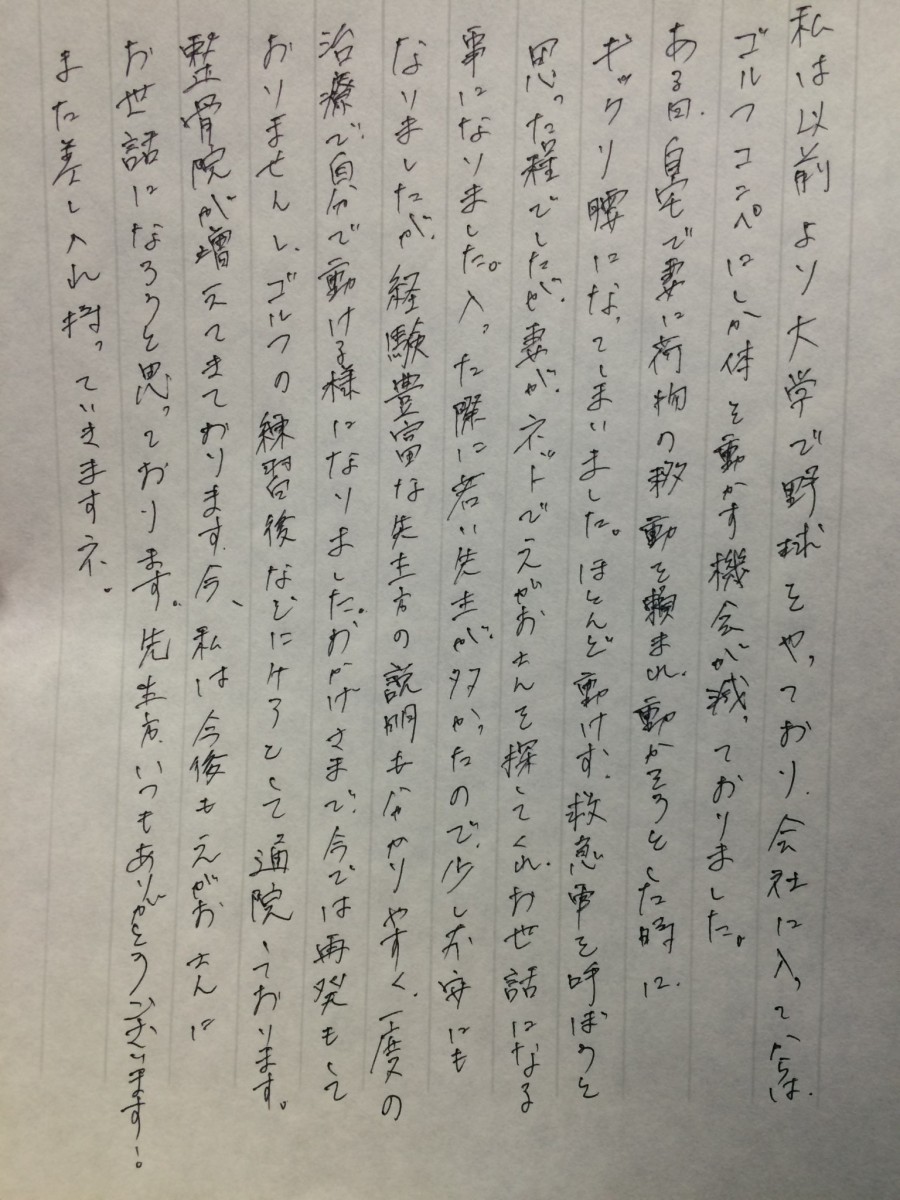 私は以前より大学で野球をやっており、会社に入ってからは、
ゴルフコンペにしか体を動かす機会が減っておりました。
ある日、自宅で妻に荷物の移動を頼まれ、動かそうとした時に、
ギックリ腰になってしまいました。ほとんど動けず、救急車を呼ぼうと
思った程でしたが、妻が、ネットでえがおさんを探してくれ、お世話になる
事になりました。入った際に若い先生が多かったので、少し不安にも
なりましたが、経験豊富な先生方の説明も分かりやすく、一度の
治療で自分で動ける様になりました。おかげさまで、今では再発もして
おりませんし、ゴルフの練習後などにケアとして通院しております。
整骨院が増えてきております、今、私は今後もえがおさんに
お世話になろうと思っております。先生方、いつもありがとうございます!
また差し入れ持っていきますネ。